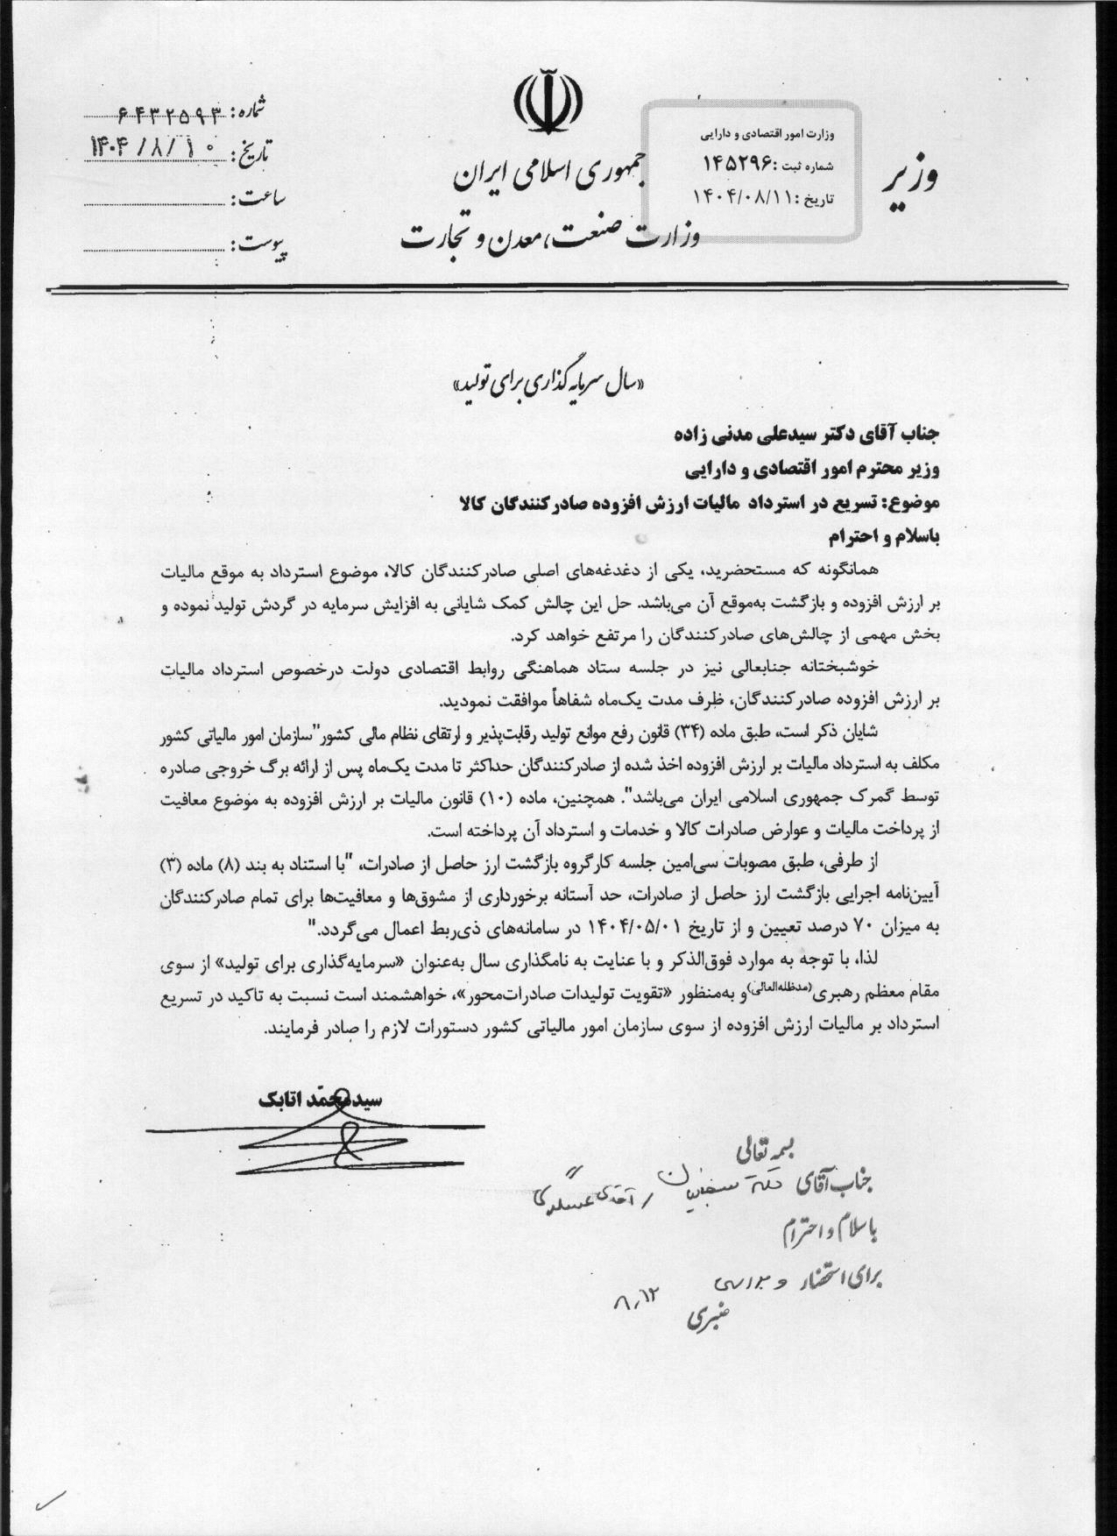 شماره: ۶۴۳۲۵۹۳
تاریخ: ۱۴۰۴/۸/۱۰
ساعت:
پیوست:
جمهوری اسلامی ایران
وزارت صنعت، معدن و تجارت
وزارت امور اقتصادی و دارایی
شماره ثبت: ۱۴۵۲۹۶
تاریخ: ۱۴۰۴/۰۸/۱۱
وزیر
«سال سرمایه‌گذاری برای تولید»
جناب آقای دکتر سیدعلی مدنی زاده
وزیر محترم امور اقتصادی و دارایی
موضوع: تسریع در استرداد مالیات ارزش افزوده صادرکنندگان کالا
باسلام و احترام
همانگونه که مستحضرید، یکی از دغدغه‌های اصلی صادرکنندگان کالا، موضوع استرداد به موقع مالیات
بر ارزش افزوده و بازگشت به‌موقع آن می‌باشد. حل این چالش کمک شایانی به افزایش سرمایه در گردش تولید نموده و
بخش مهمی از چالش‌های صادرکنندگان را مرتفع خواهد کرد.
خوشبختانه جنابعالی نیز در جلسه ستاد هماهنگی روابط اقتصادی دولت درخصوص استرداد مالیات
بر ارزش افزوده صادرکنندگان، ظرف مدت یک‌ماه شفاهاً موافقت نمودید.
شایان ذکر است، طبق ماده (۳۴) قانون رفع موانع تولید رقابت‌پذیر و ارتقای نظام مالی کشور"سازمان امور مالیاتی کشور
مکلف به استرداد مالیات بر ارزش افزوده اخذ شده از صادرکنندگان حداکثر تا مدت یک‌ماه پس از ارائه برگ خروجی صادره
توسط گمرک جمهوری اسلامی ایران می‌باشد". همچنین، ماده (۱۰) قانون مالیات بر ارزش افزوده به موضوع معافیت
از پرداخت مالیات و عوارض صادرات کالا و خدمات و استرداد آن پرداخته است.
از طرفی، طبق مصوبات سی‌امین جلسه کارگروه بازگشت ارز حاصل از صادرات، "با استناد به بند (۸) ماده (۳)
آیین‌نامه اجرایی بازگشت ارز حاصل از صادرات، حد آستانه برخورداری از مشوق‌ها و معافیت‌ها برای تمام صادرکنندگان
به میزان ۷۰ درصد تعیین و از تاریخ ۱۴۰۴/۰۵/۰۱ در سامانه‌های ذی‌ربط اعمال می‌گردد."
لذا، با توجه به موارد فوق‌الذکر و با عنایت به نامگذاری سال به‌عنوان «سرمایه‌گذاری برای تولید» از سوی
مقام معظم رهبری(مدظله‌العالی) و به‌منظور «تقویت تولیدات صادرات‌محور»، خواهشمند است نسبت به تاکید در تسریع
استرداد بر مالیات ارزش افزوده از سوی سازمان امور مالیاتی کشور دستورات لازم را صادر فرمایند.
سیدمحمد اتابک
بسمه تعالی
جناب آقای دکتر / آقای
باسلام و احترام
برای استحضار و بررسی
۸/۱۲
عنبری